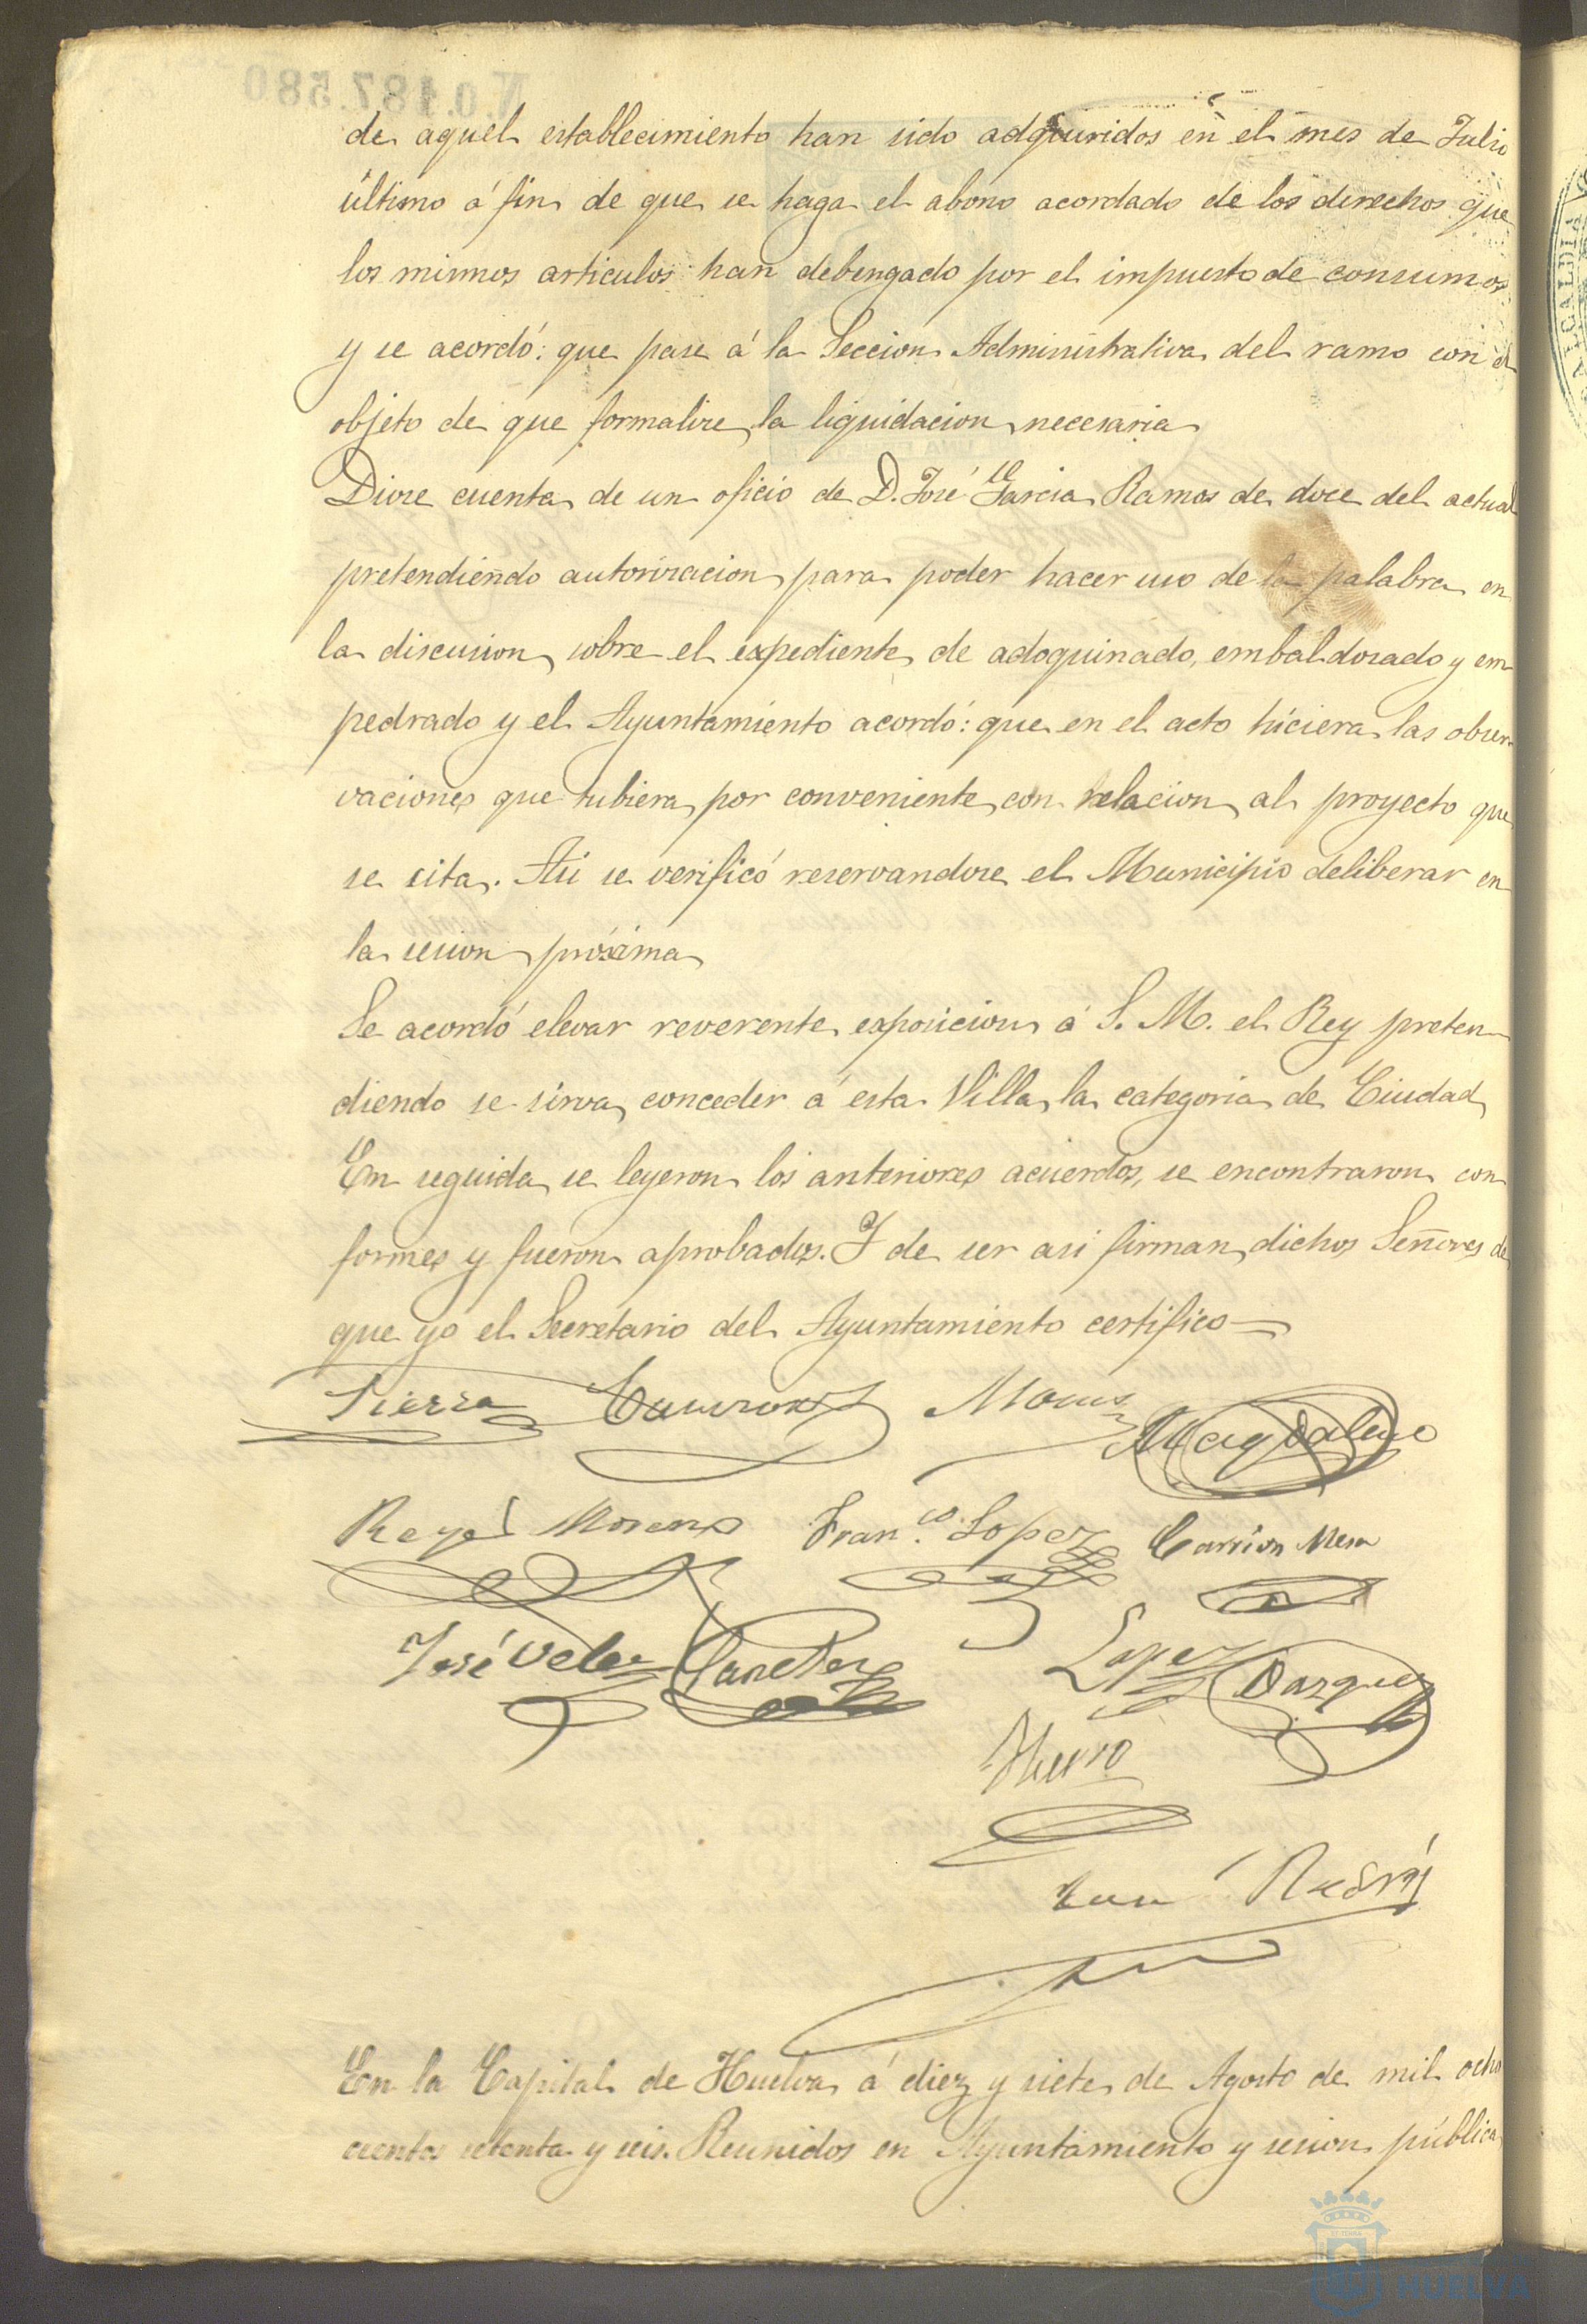 de aquel establecimiento han sido adquiridos en el mes de Julio
último á fin de que se haga el abono acordado de los derechos que
los mismos articulos han debengado por el impuesto de consumos
y se acordó: que pase á la Seccion Administrativa del ramo con el
objeto de que formalice la liquidacion necesaria
Diose cuenta de un oficio de D. José Garcia Ramos de doce del actual
pretendiendo autorizacion para poder hacer uso de la palabra en
la discusion sobre el expediente de adoquinado, embaldosado y em
pedrado y el Ayuntamiento acordó: que en el acto hiciera las obser
vaciones que tubiera por conveniente con relacion al proyecto que
se cita. Asi se verificó reservandose el Municipio deliberar en
la sesion próxima
Se acordó elevar reverente exposicion á S. M. el Rey preten
diendo se sirva conceder á esta Villa la categoria de Ciudad
En seguida se leyeron los anteriores acuerdos, se encontraron con
formes y fueron aprobados. Y de ser asi firman dichos Señores de
que yo el Secretario del Ayuntamiento certifico
Sierra
Magdaleno
Reyes Moreno Fran.co Lopez Carrion Mesa
José Velez Sanchez Lopez Vazquez
En la Capital de Huelva á diez y siete de Agosto de mil ocho
cientos setenta y seis. Reunidos en Ayuntamiento y sesion pública
Nº 0.187.580
ALCALDIA
HUELVA